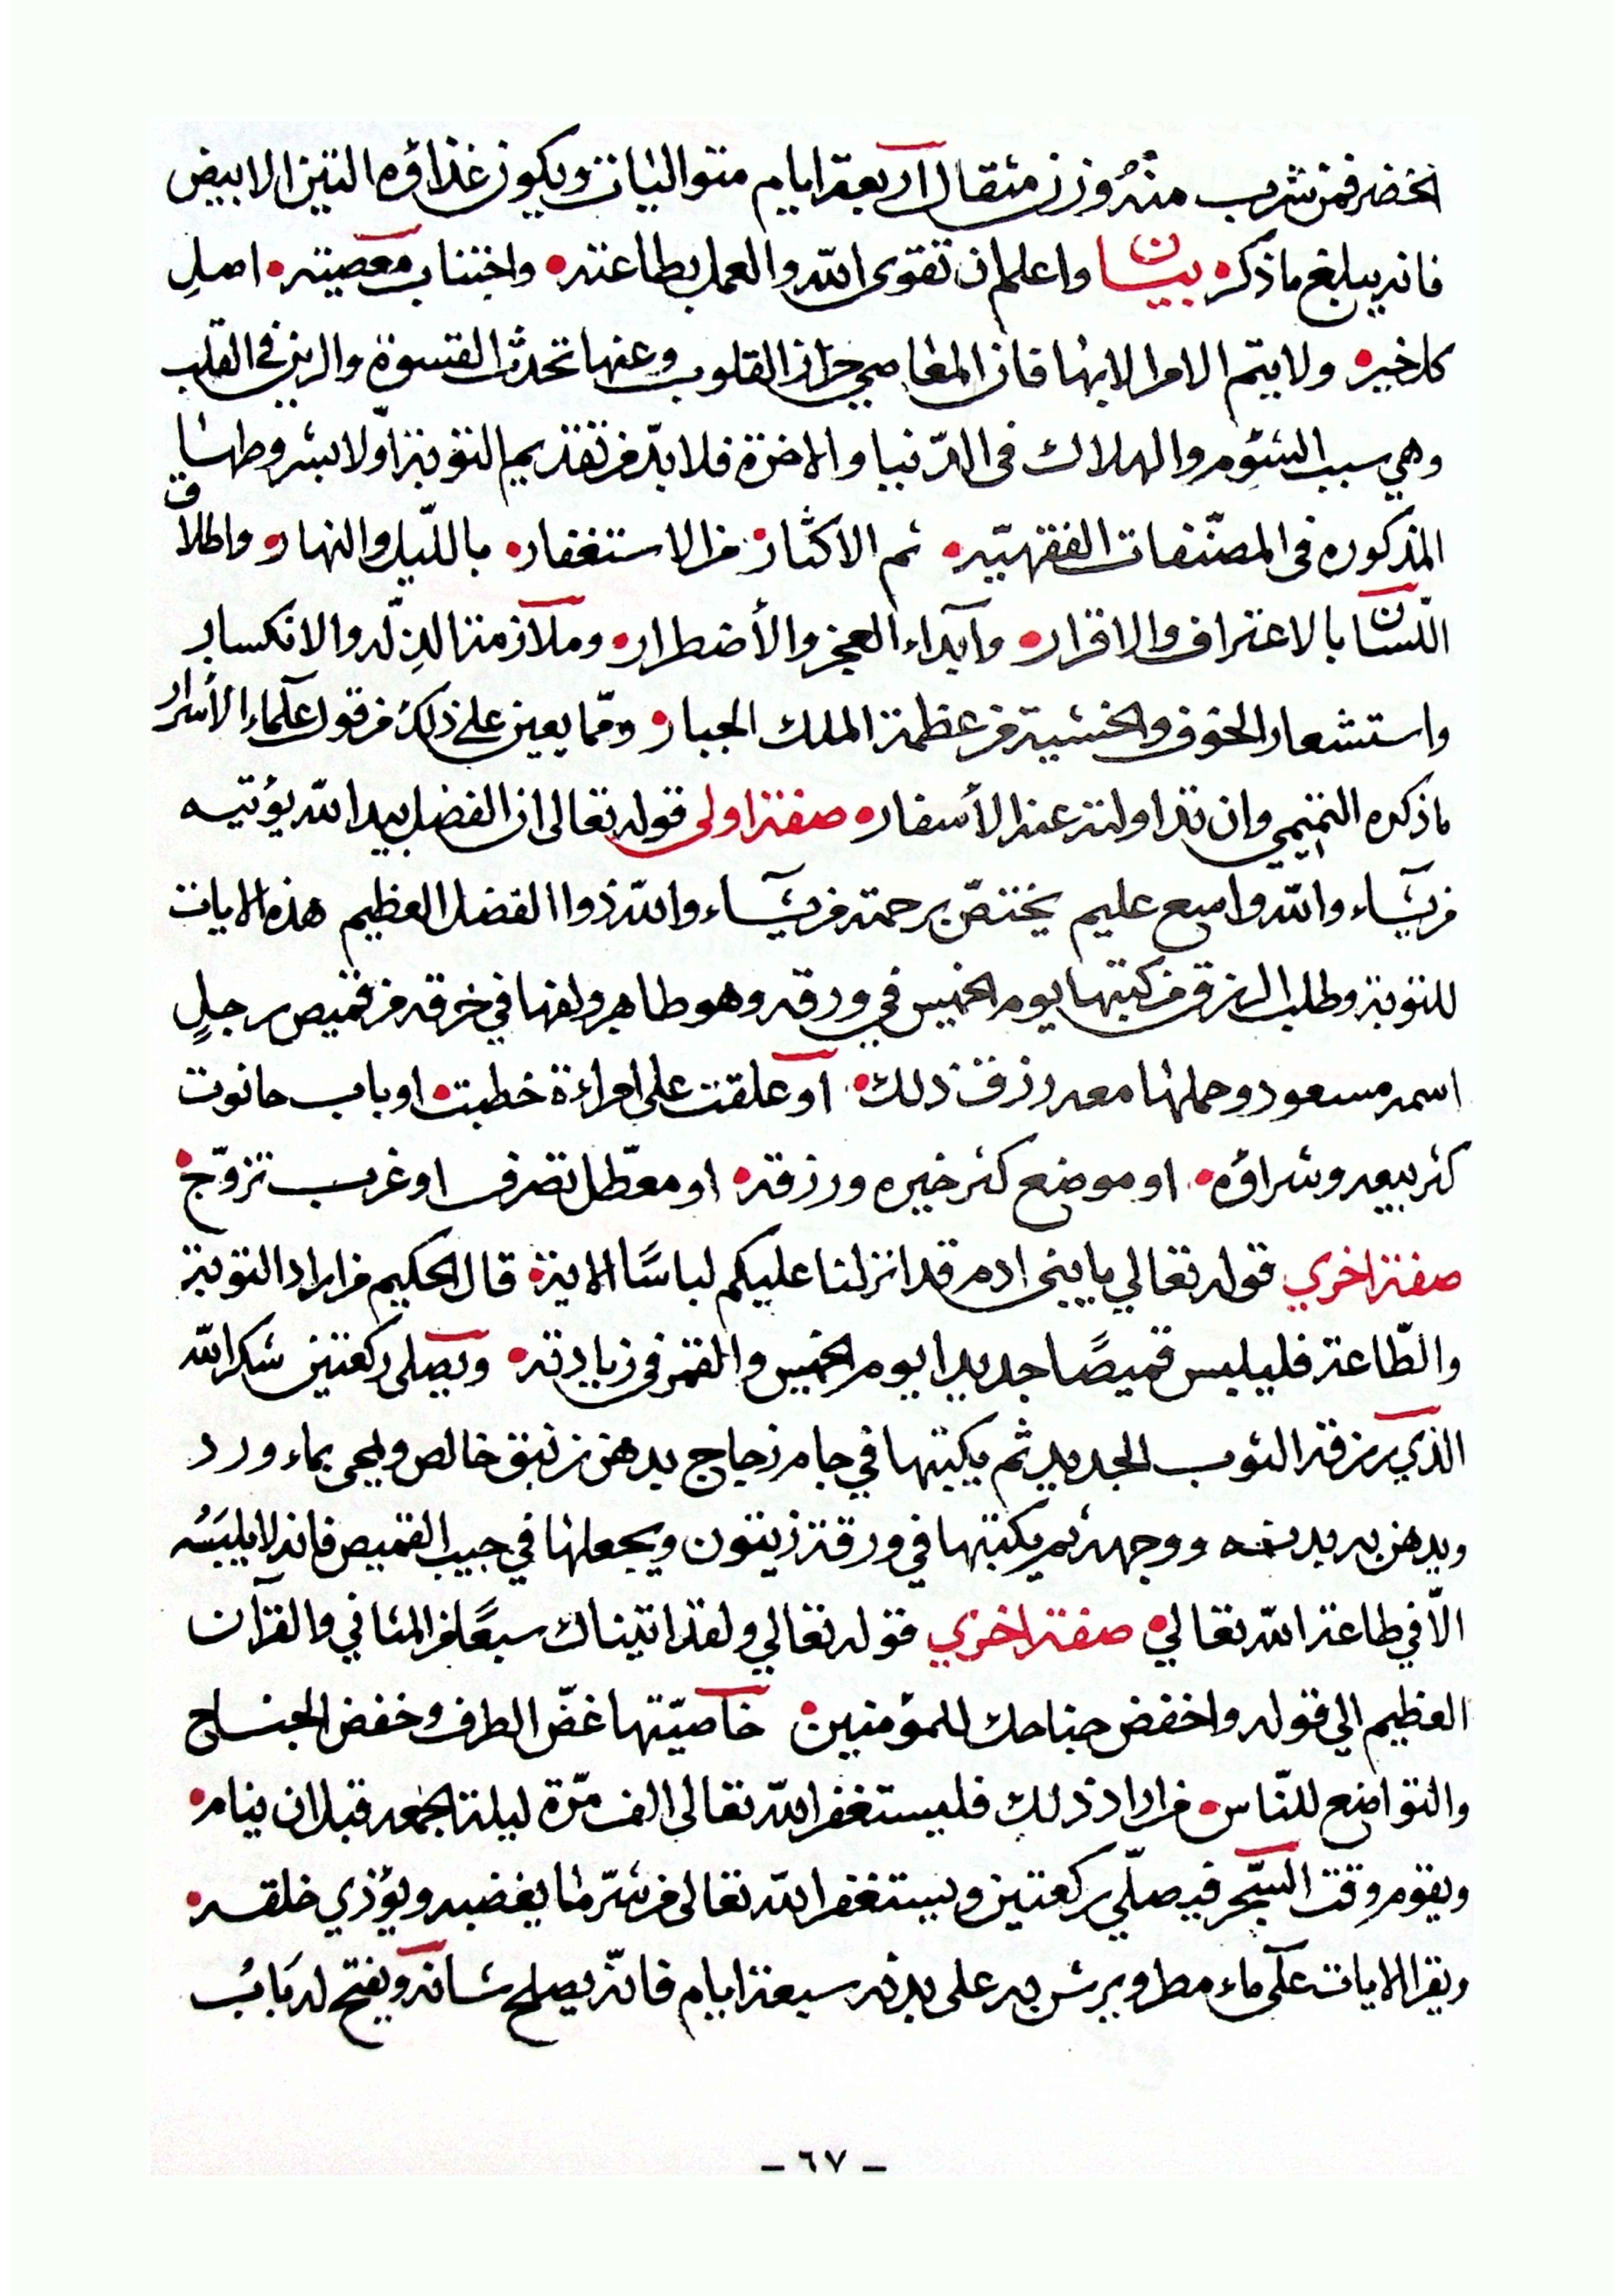 الخضر فمن شرب منه وزن مثقال اربعة ايام متواليات ويكون غذاؤه التين الابيض
فانه يبلغ ما ذكره بيان واعلم ان تقوى الله والعمل بطاعته واجتناب معصيته اصل
كل خير ولا يتم الامر الا بها فان المعاصي حزاز القلوب وعنها تحدث القسوة والرين في القلب
وهي سبب الشؤم والهلاك في الدنيا والاخرة فلا بد من تقديم التوبة اولا بشروطها
المذكوره في المصنفات الفقهيه ثم الاكثار من الاستغفار بالليل والنهار واطلاق
اللسان بالاعتراف والاقرار وابداء العجز والأضطرار وملازمة الذله والانكسار
واستشعار الخوف والخشية من عظمة الملك الجبار ومما يعين على ذلك من قول علماء الأسرار
ما ذكره التميمي وان تداولته عنه الأسفار صفة اولى قوله تعالى ان الفضل بيد الله يؤتيه
من يشاء والله واسع عليم يختص برحمته من يشاء والله ذوا الفضل العظيم هذه الايات
للتوبة وطلب الرزق من كتبها يوم الخميس في ورقه وهو طاهر ولفها في خرقه من قميص رجل
اسمه مسعود وحملها معه رزق ذلك او علقت على امراءة خطبت او باب حانوت
كثر بيعه وشراؤه او موضع كثر خيره ورزقه او معطل تصرف او عزب تزوج
صفة اخري قوله تعالي يا بني ادم قد انزلنا عليكم لباسًا الاية قال الحكيم من اراد التوبة
والطاعة فليلبس قميصًا جديدا يوم الخميس والقمر في زيادته ويصلى ركعتين شكرا لله
الذي رزقه الثوب الجديد ثم يكتبها في جام زجاج بدهن زنبق خالص ويمحى بماء ورد
ويدهن به يديه ووجهه ثم يكتبها في ورقة زيتون ويجعلها في جيب القميص فانه لا يلبسه
الا في طاعة الله تعالي صفة اخري قوله تعالي ولقد اتيناك سبعًا من المثاني والقرآن
العظيم الي قوله واخفض جناحك للمؤمنين خاصيتها غض الطرف وخفض الجناح
والتواضع للناس من اراد ذلك فليستغفر الله تعالى الف مرة ليلة الجمعه قبل ان ينام
ويقوم وقت السحر فيصلي ركعتين ويستغفر الله تعالى من شر ما يغضبه ويؤذي خلقه
ويقرا الايات على ماء مطر ويرش به على بدنه سبعة ايام فانه يصلح شانه ويفتح له باب
- ٦٧ -